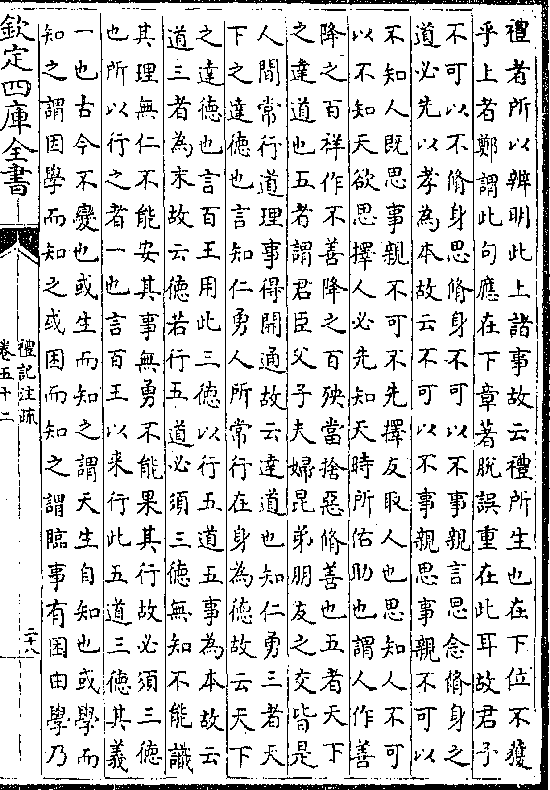 禮者所以辨明此上諸事故云禮所生也在下位不獲
乎上者鄭謂此句應在下章著脫誤重在此耳故君子
不可以不脩身思脩身不可以不事親言思念脩身之
道必先以孝為本故云不可以不事親思事親不可以
不知人既思事親不可不先擇友取人也思知人不可
以不知天欲思擇人必先知天時所佑助也謂人作善
降之百祥作不善降之百殃當捨惡脩善也五者天下
之達道也五者謂君臣父子夫婦昆弟朋友之交皆是
人間常行道理事得開通故云達道也知仁勇三者天
下之達德也言知仁勇人所常行在身為德故云天下
之達德也言百王用此三德以行五道五事為本故云
道三者為末故云德若行五道必須三德無知不能識
其理無仁不能安其事無勇不能果其行故必須三德
也所以行之者一也言百王以來行此五道三德其義
一也古今不變也或生而知之謂天生自知也或學而
知之謂因學而知之或困而知之謂臨事有困由學乃
欽定四庫全書
禮記注疏
卷五十二
二十八